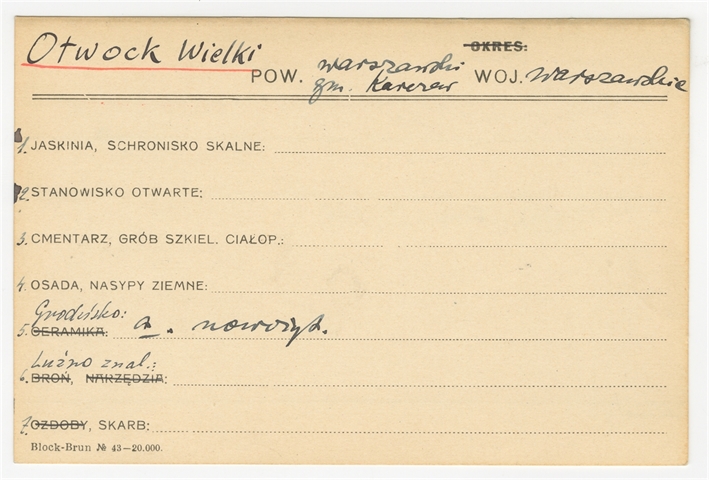 Otwock Wielki
OKRES:
POW. warszawski WOJ. warszawskie
gm. Karczew
1. JASKINIA, SCHRONISKO SKALNE:
2. STANOWISKO OTWARTE:
3. CMENTARZ, GRÓB SZKIEL. CIAŁOP.:
4. OSADA, NASYPY ZIEMNE:
Grodzisko:
5. CERAMIKA: a. nowożyt.
Luźno znal.:
6. BROŃ, NARZĘDZIA:
7. OZDOBY, SKARB:
Block-Brun № 43—20.000.